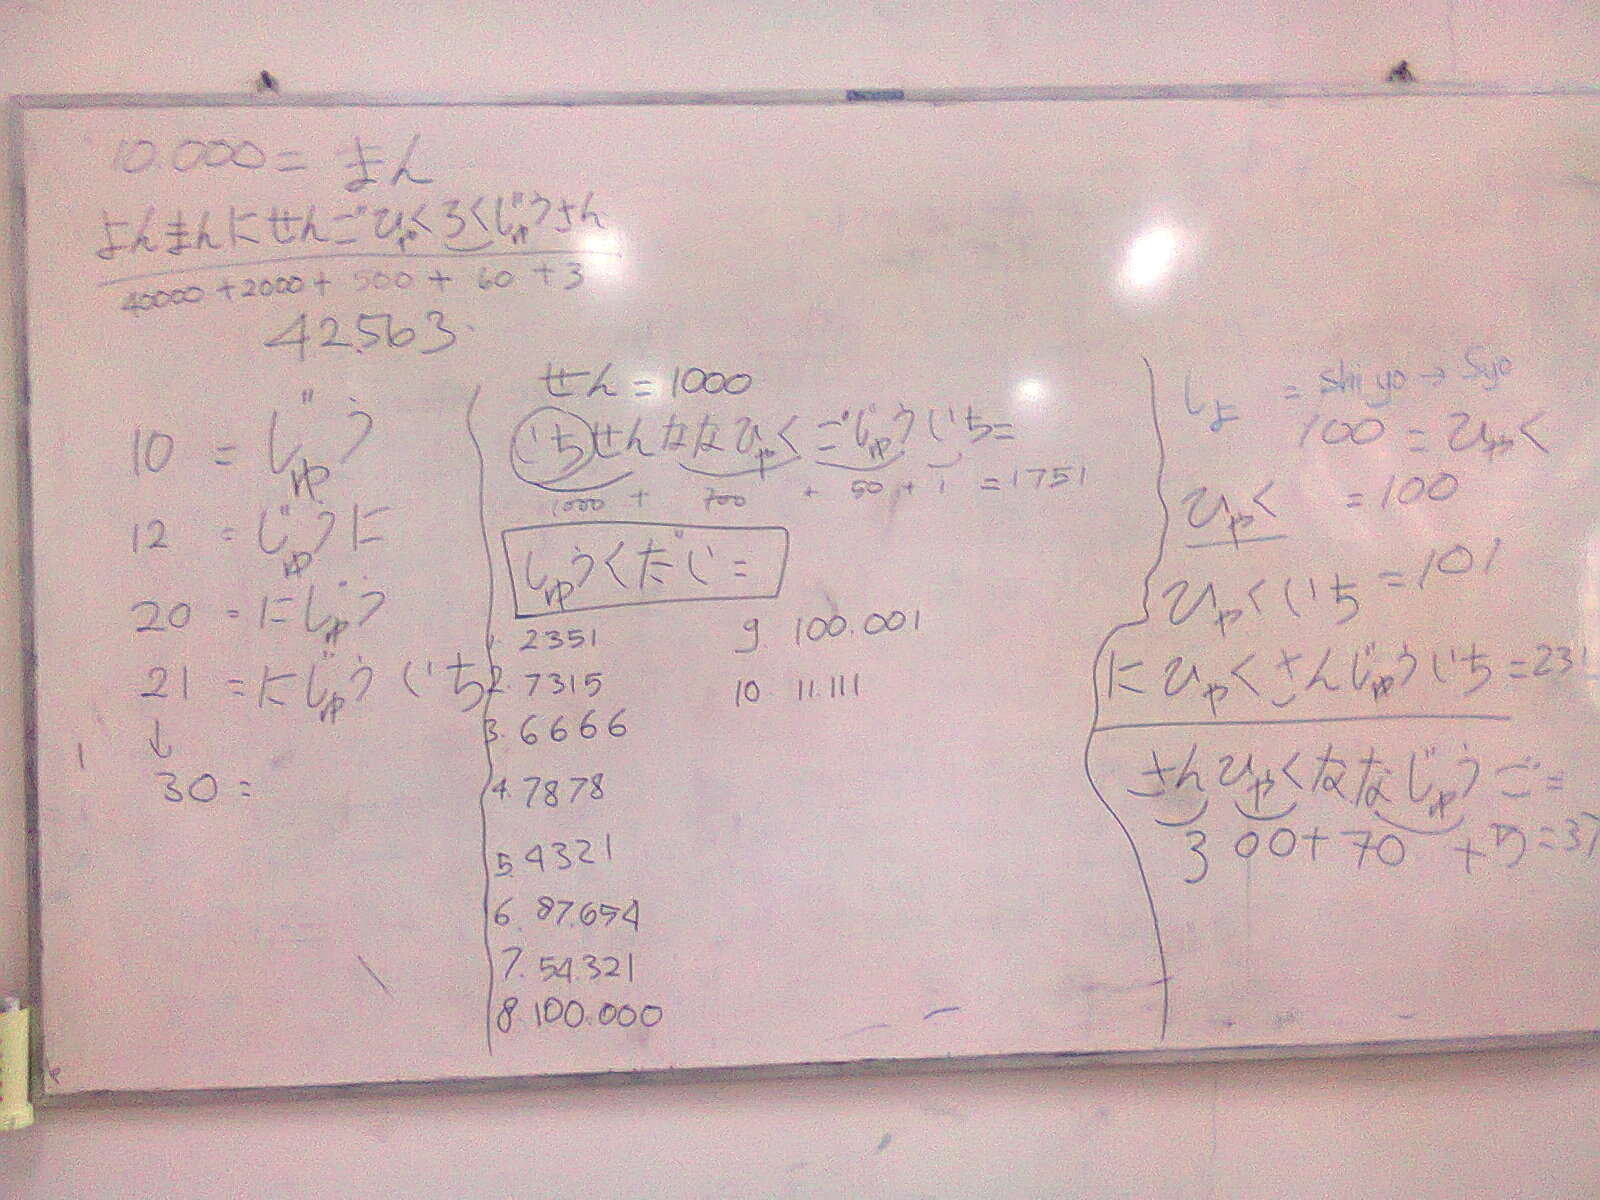 10.000 = まん
よんまんにせんごひゃくろくじゅうさん
40000 + 2000 + 500 + 60 + 3
42563
10 = じゅう
12 = じゅうに
20 = にじゅう
21 = にじゅういち
↓
30 =
せん = 1000
いちせんななひゃくごじゅういち =
1000 + 700 + 50 + 1 = 1751
しゅうくだい =
1. 2351
2. 7315
3. 6666
4. 7878
5. 4321
6. 87.654
7. 54.321
8. 100.000
9. 100.001
10 11.111
しょ = shiyo → Syo
100 = ひゃく
ひゃく = 100
ひゃくいち = 101
にひゃくさんじゅういち = 231
さんひゃくななじゅうご =
300 + 70 + 5 = 37